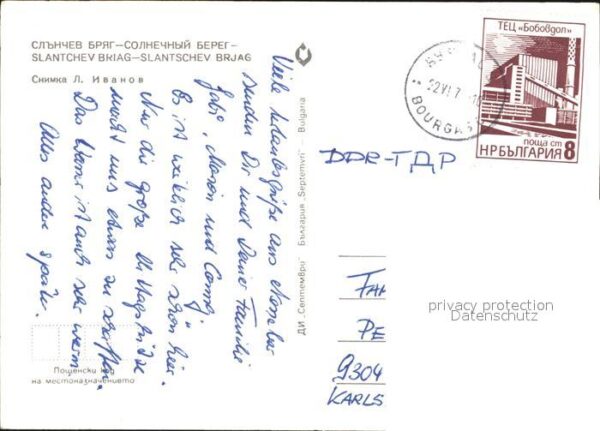 СЛЪНЧЕВ БРЯГ—СОЛНЕЧНЫЙ БЕРЕГ—
SLANTCHEV BRIAG—SLANTSCHEV BRJAG
Снимка Л. Иванов
Viele Urlaubsgrüße aus Nessebar
senden Dir und Deiner Familie
Gabi, Marion und Conny.
Es ist wirklich sehr schön hier.
Nur die große Mittagshitze
macht uns etwas zu schaffen.
Das Wasser ist auch sehr warm
Alles andere später.
Пощенски код
на местоназначението
ДИ „Септември" България „Septemvri" — Bulgaria
ТЕЦ „Бобовдол"
поща ст
НР БЪЛГАРИЯ 8
22.VI.7
BOURGAS
DDR-ГДР
FAH
PE
9304
KARLS
privacy protection
Datenschutz